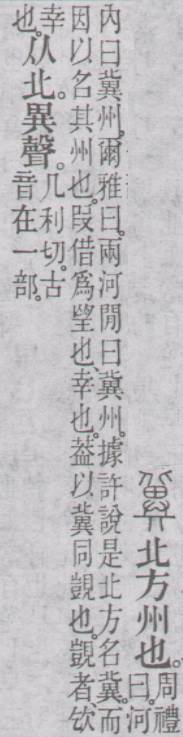 冀北方州也。周禮
曰。河
內曰冀州。爾雅曰。兩河閒曰冀州。據許說是北方名冀。而
因以名其州也。叚借爲望也、幸也。葢以冀同覬也。覬者、㰟
幸也。从北。異聲。几利切。古
音在一部。